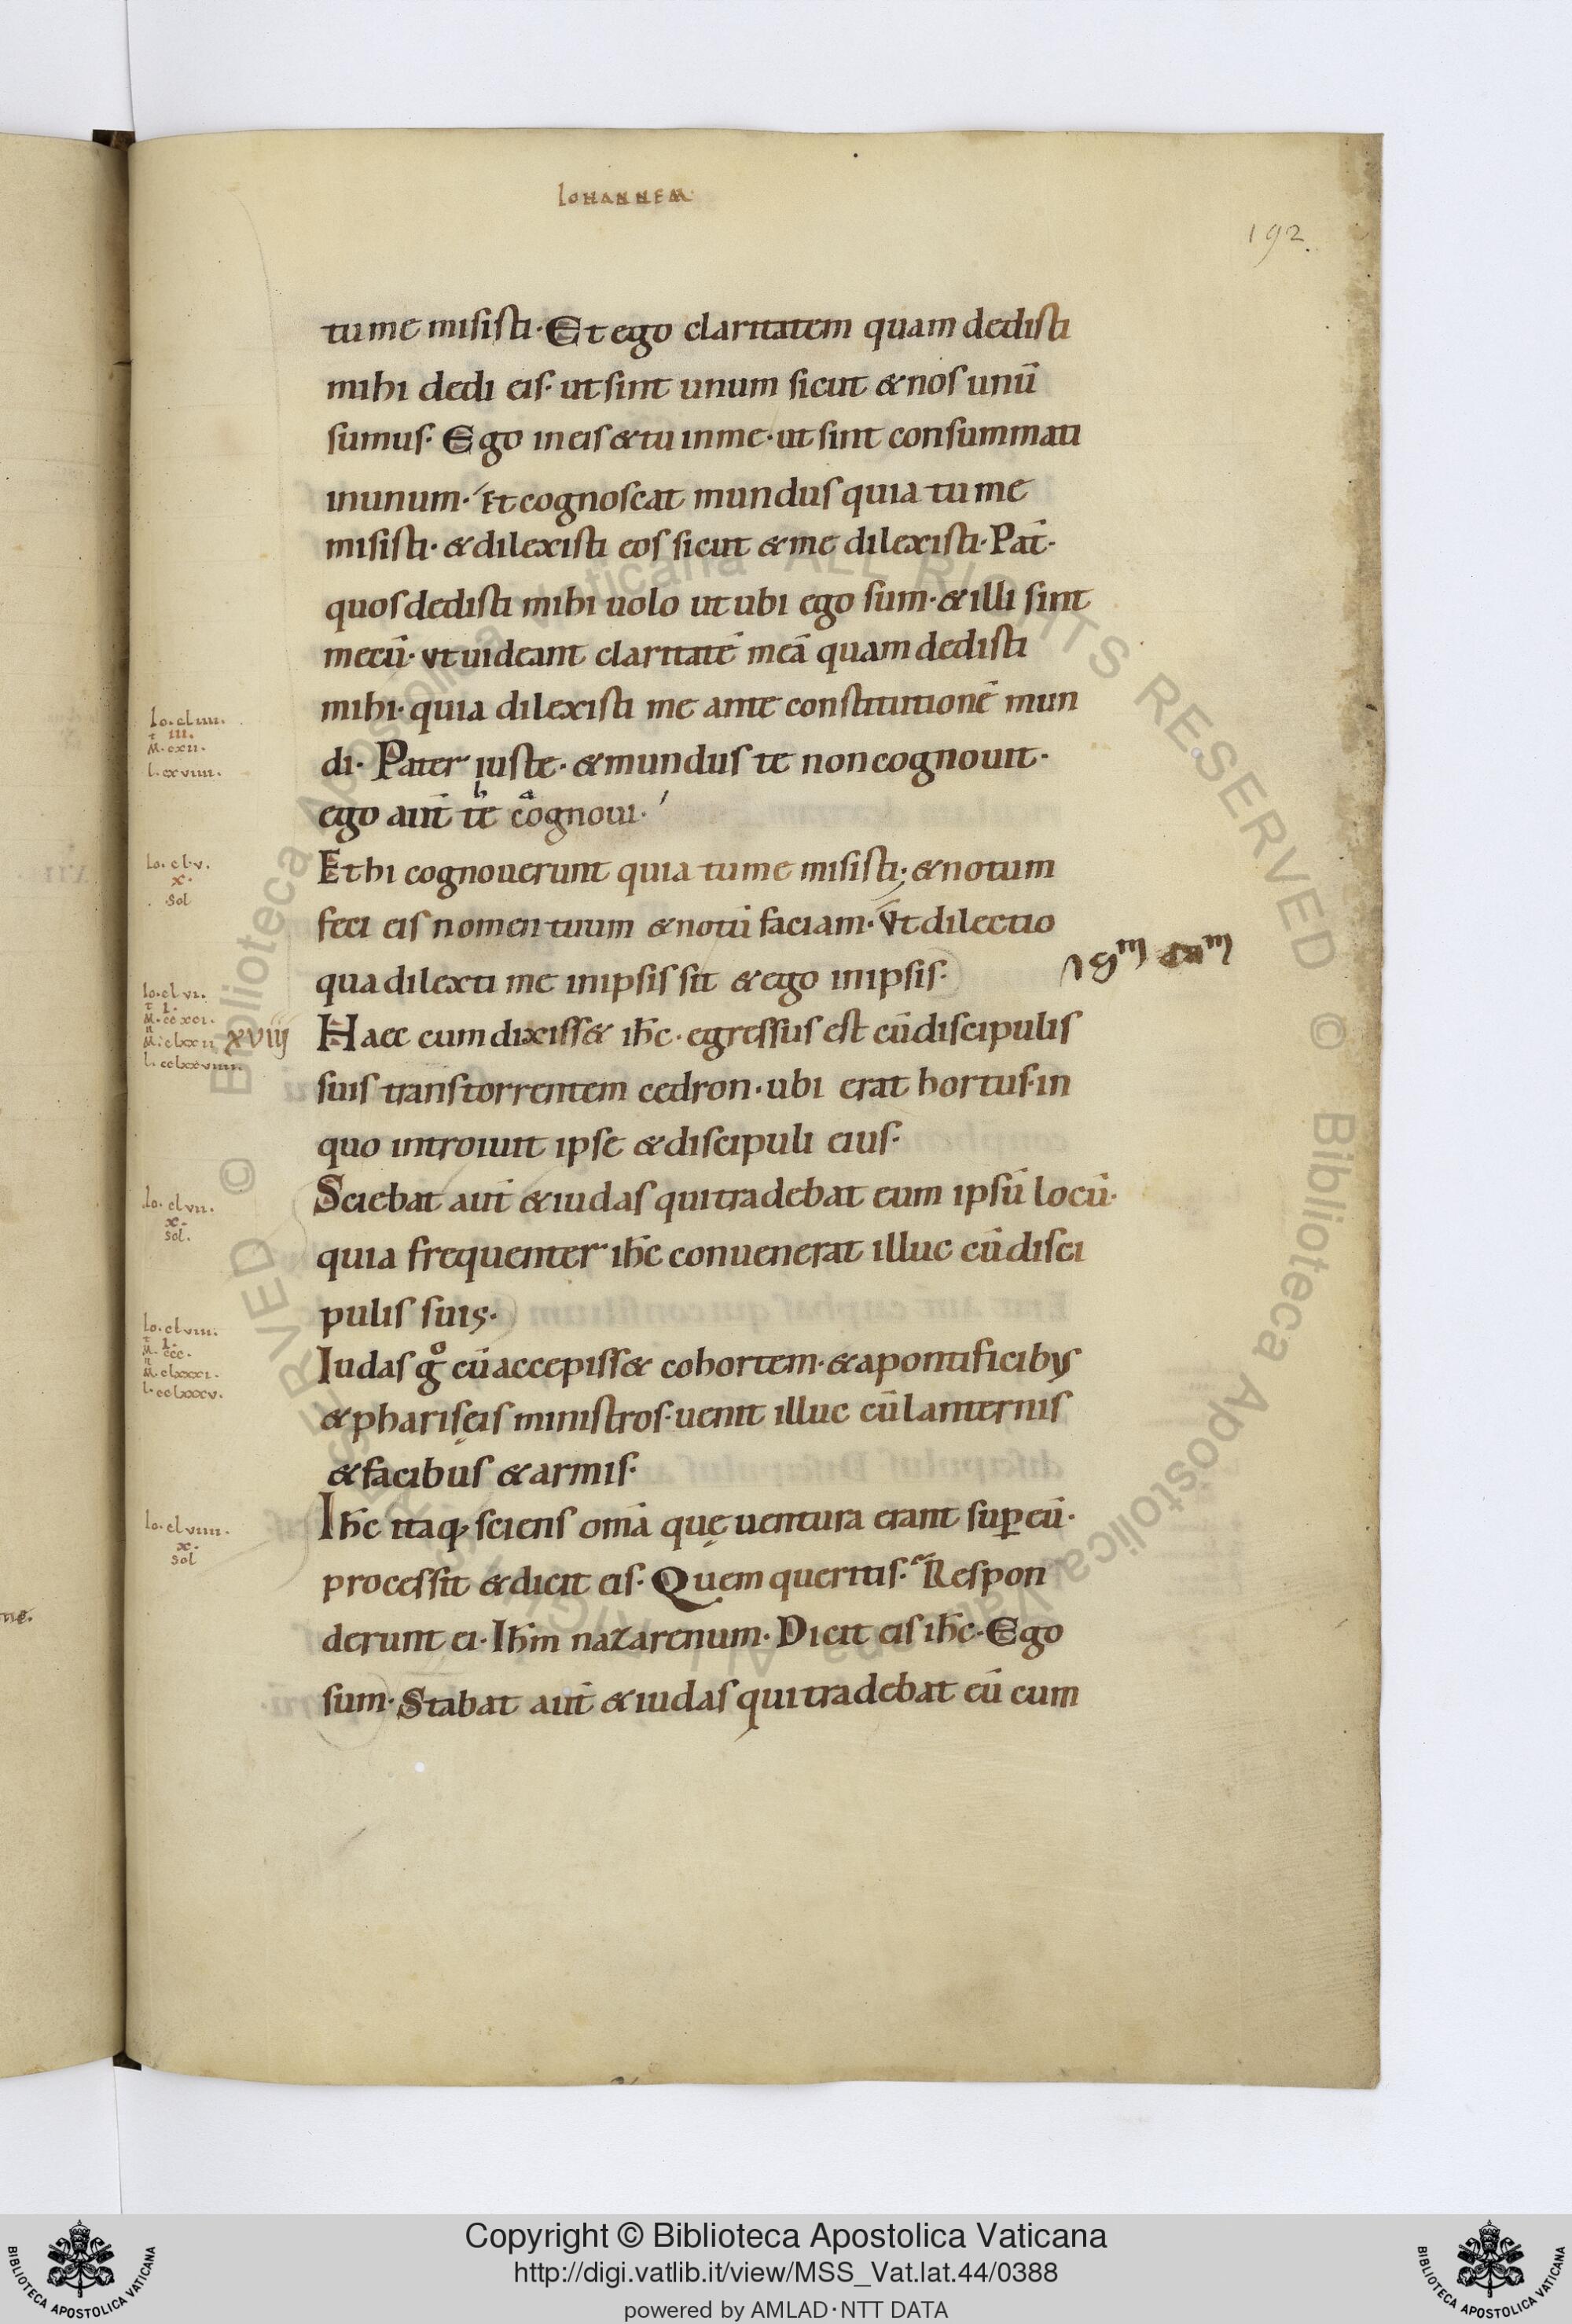 IOHANNEM
192.
tu me misisti. Et ego claritatem quam dedisti
mihi dedi eis. ut sint unum sicut & nos unū
sumus. Ego in eis & tu in me. ut sint consummati
in unum. Et cognoscat mundus quia tu me
misisti. & dilexisti eos sicut & me dilexisti. Pat̄.
quos dedisti mihi uolo ut ubi ego sum. & illi sint
mecū. ut uideant claritatē meā quam dedisti
Io. cl iiii.
mihi. quia dilexisti me ante constitutionē mun
III.
M. cxii.
di. Pater iuste. & mundus te non cognouit.
l. cxviiii.
ego aut̄ te cognoui.
Io. cl.v.
Et hi cognouerunt quia tu me misisti; & notum
x.
sol
feci eis nomen tuum & notū faciam. Vt dilectio
qua dilexti me in ipsis sit & ego in ipsis.
Io. cl vi.
I.
M. cc xci.
XVIII
Haec cum dixiss& ih̄c. egressus est cū discipulis
M. clxx ii
l. cclxxviiii.
suis trans torrentem cedron. ubi erat hortus. in
quo introiuit ipse & discipuli eius.
Io. cl vii.
Sciebat aut̄ & iudas qui tradebat eum ipsū locū.
x.
sol.
quia frequenter ih̄c conuenerat illuc cū disci
pulis suis.
Io. cl viii.
I.
M. ccc.
Iudas g̊ cū accepiss& cohortem. & a pontificibus
M. clxxxi.
l. cclxxxv.
& pharisęis ministros. uenit illuc cū lanternis
& facibus & armis.
Io. cl viiii.
Ih̄c itaq; sciens om̄a quę uentura erant sup̄ eū.
x.
sol
processit & dicit eis. Quem queritis. Respon
derunt ei. Ih̄m nazarenum. Dicit eis ih̄c. Ego
sum. Stabat aut̄ & iudas qui tradebat eū cum
© Biblioteca Apostolica Vaticana ALL RIGHTS RESERVED
BIBLIOTECA APOSTOLICA VATICANA
Copyright © Biblioteca Apostolica Vaticana
http://digi.vatlib.it/view/MSS_Vat.lat.44/0388
powered by AMLAD·NTT DATA
BIBLIOTECA APOSTOLICA VATICANA